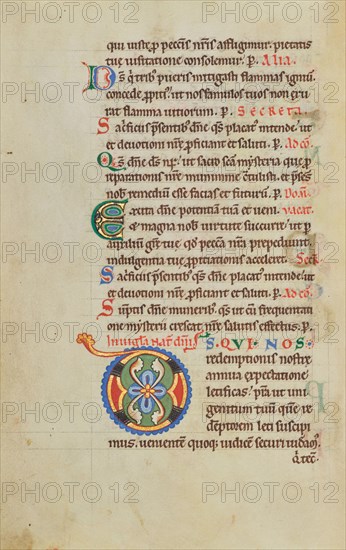 qui iuste pro peccatis nris affligimur. pietatis
tue uisitatione consolemur. P. Alia.
Ds q trib; pueris mitigasti flammas igniū.
concede ppiti'. ut nos famulos tuos non exu
rat flamma uitiorum. P. Secreta.
Sacrificiis psentib; dne qs placat' intende. ut
et deuotioni nrę pficiant et saluti. P. Ad cō.
Qs dne ds nr. ut sacro sca mysteria que p
reparationis nrę munimine tulisti. et psens
nob remediū esse facias et futurū. P. Dom̄
Excita dne potentiam tuā et ueni. uacat.
et magna nob uirtute succurre. ut p
auxiliū grę tuę qd pecca nra prepediunt.
indulgentia tuę ppitiationis acceleret. Secr.
Sacrificiis psentib; qs dne placat' intende. ut
et deuotioni nrę pficiant et saluti. P. Ad cō.
Sumptis dne muneribus. qs ut cum frequentati
one mysterii crescat nrę salutis effectus. P.
In uigla nat dni
DS. QVI. NOS
redemptionis nostrę
annua expectatione
letificas. psta. ut uni
genitum tuū quē re
demptorem leti suscipi
mus. uenientē quoq; iudicē securi uideam'.